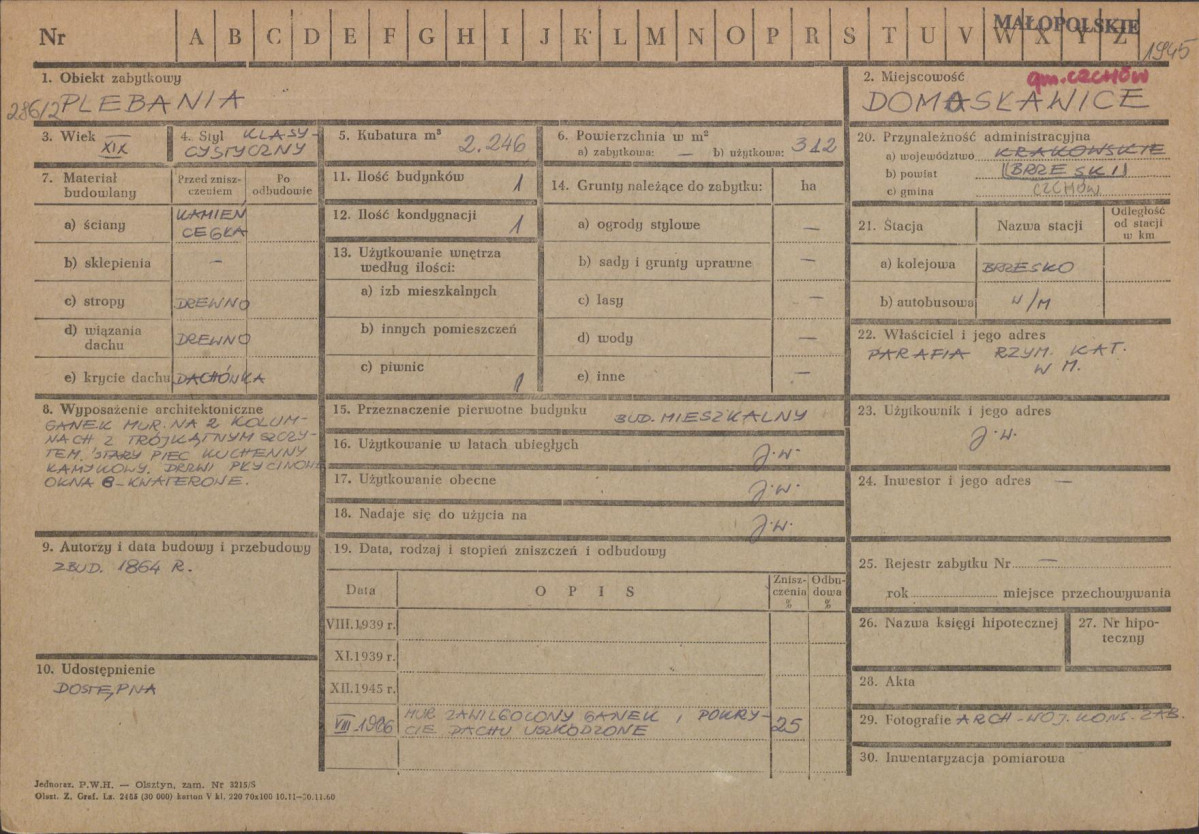 Nr A B C D E F G H I J K L M N O P R S T U V W X Y Z
MAŁOPOLSKIE
1945
1. Obiekt zabytkowy
286/2 PLEBANIA
2. Miejscowość
gm. CZCHÓW
DOMASŁAWICE
3. Wiek XIX
4. Styl KLASY-
CYSTYCZNY
5. Kubatura m³ 2.246
6. Powierzchnia w m²
a) zabytkowa: — b) użytkowa: 312
7. Materiał budowlany
Przed zniszczeniem
Po odbudowie
a) ściany KAMIEŃ
CEGŁA
b) sklepienia –
c) stropy DREWNO
d) wiązania dachu DREWNO
e) krycie dachu DACHÓWKA
8. Wyposażenie architektoniczne
GANEK MUR. NA 2 KOLUM-
NACH Z TRÓJKĄTNYM SZCZY-
TEM. STARY PIEC KUCHENNY
KAMYKOWY. DRZWI PŁYCINOWE
OKNA 6-KWATEROWE.
9. Autorzy i data budowy i przebudowy
ZBUD. 1864 R.
10. Udostępnienie
DOSTĘPNA
11. Ilość budynków 1
12. Ilość kondygnacji 1
13. Użytkowanie wnętrza
według ilości:
a) izb mieszkalnych
b) innych pomieszczeń
c) piwnic 1
14. Grunty należące do zabytku: ha
a) ogrody stylowe —
b) sady i grunty uprawne —
c) lasy —
d) wody —
e) inne —
15. Przeznaczenie pierwotne budynku BUD. MIESZKALNY
16. Użytkowanie w latach ubiegłych J.W.
17. Użytkowanie obecne J.W.
18. Nadaje się do użycia na J.W.
19. Data, rodzaj i stopień zniszczeń i odbudowy
Data O P I S Zniszczenia % Odbudowa %
VIII.1939 r.
XI.1939 r.
XII.1945 r.
MUR ZAWILGOCONY GANEK, POKRY-
CIE DACHU USZKODZONE 25
20. Przynależność administracyjna
a) województwo KRAKOWSKIE
b) powiat BRZESKI
c) gmina CZCHÓW
21. Stacja Nazwa stacji Odległość od stacji w km
a) kolejowa BRZESKO
b) autobusowa W/M
22. Właściciel i jego adres
PARAFIA RZYM. KAT.
W M.
23. Użytkownik i jego adres
J.W.
24. Inwestor i jego adres —
25. Rejestr zabytku Nr —
rok miejsce przechowywania
26. Nazwa księgi hipotecznej
27. Nr hipoteczny
28. Akta
29. Fotografie ARCH. WOJ. KONS. ZAB.
30. Inwentaryzacja pomiarowa
Jednoraz. P.W.H. — Olsztyn, zam. Nr 3215/S
Olszt. Z. Graf. Lz. 2458 (30 000) karton V kl. 220 70x100 10.11—30.11.60